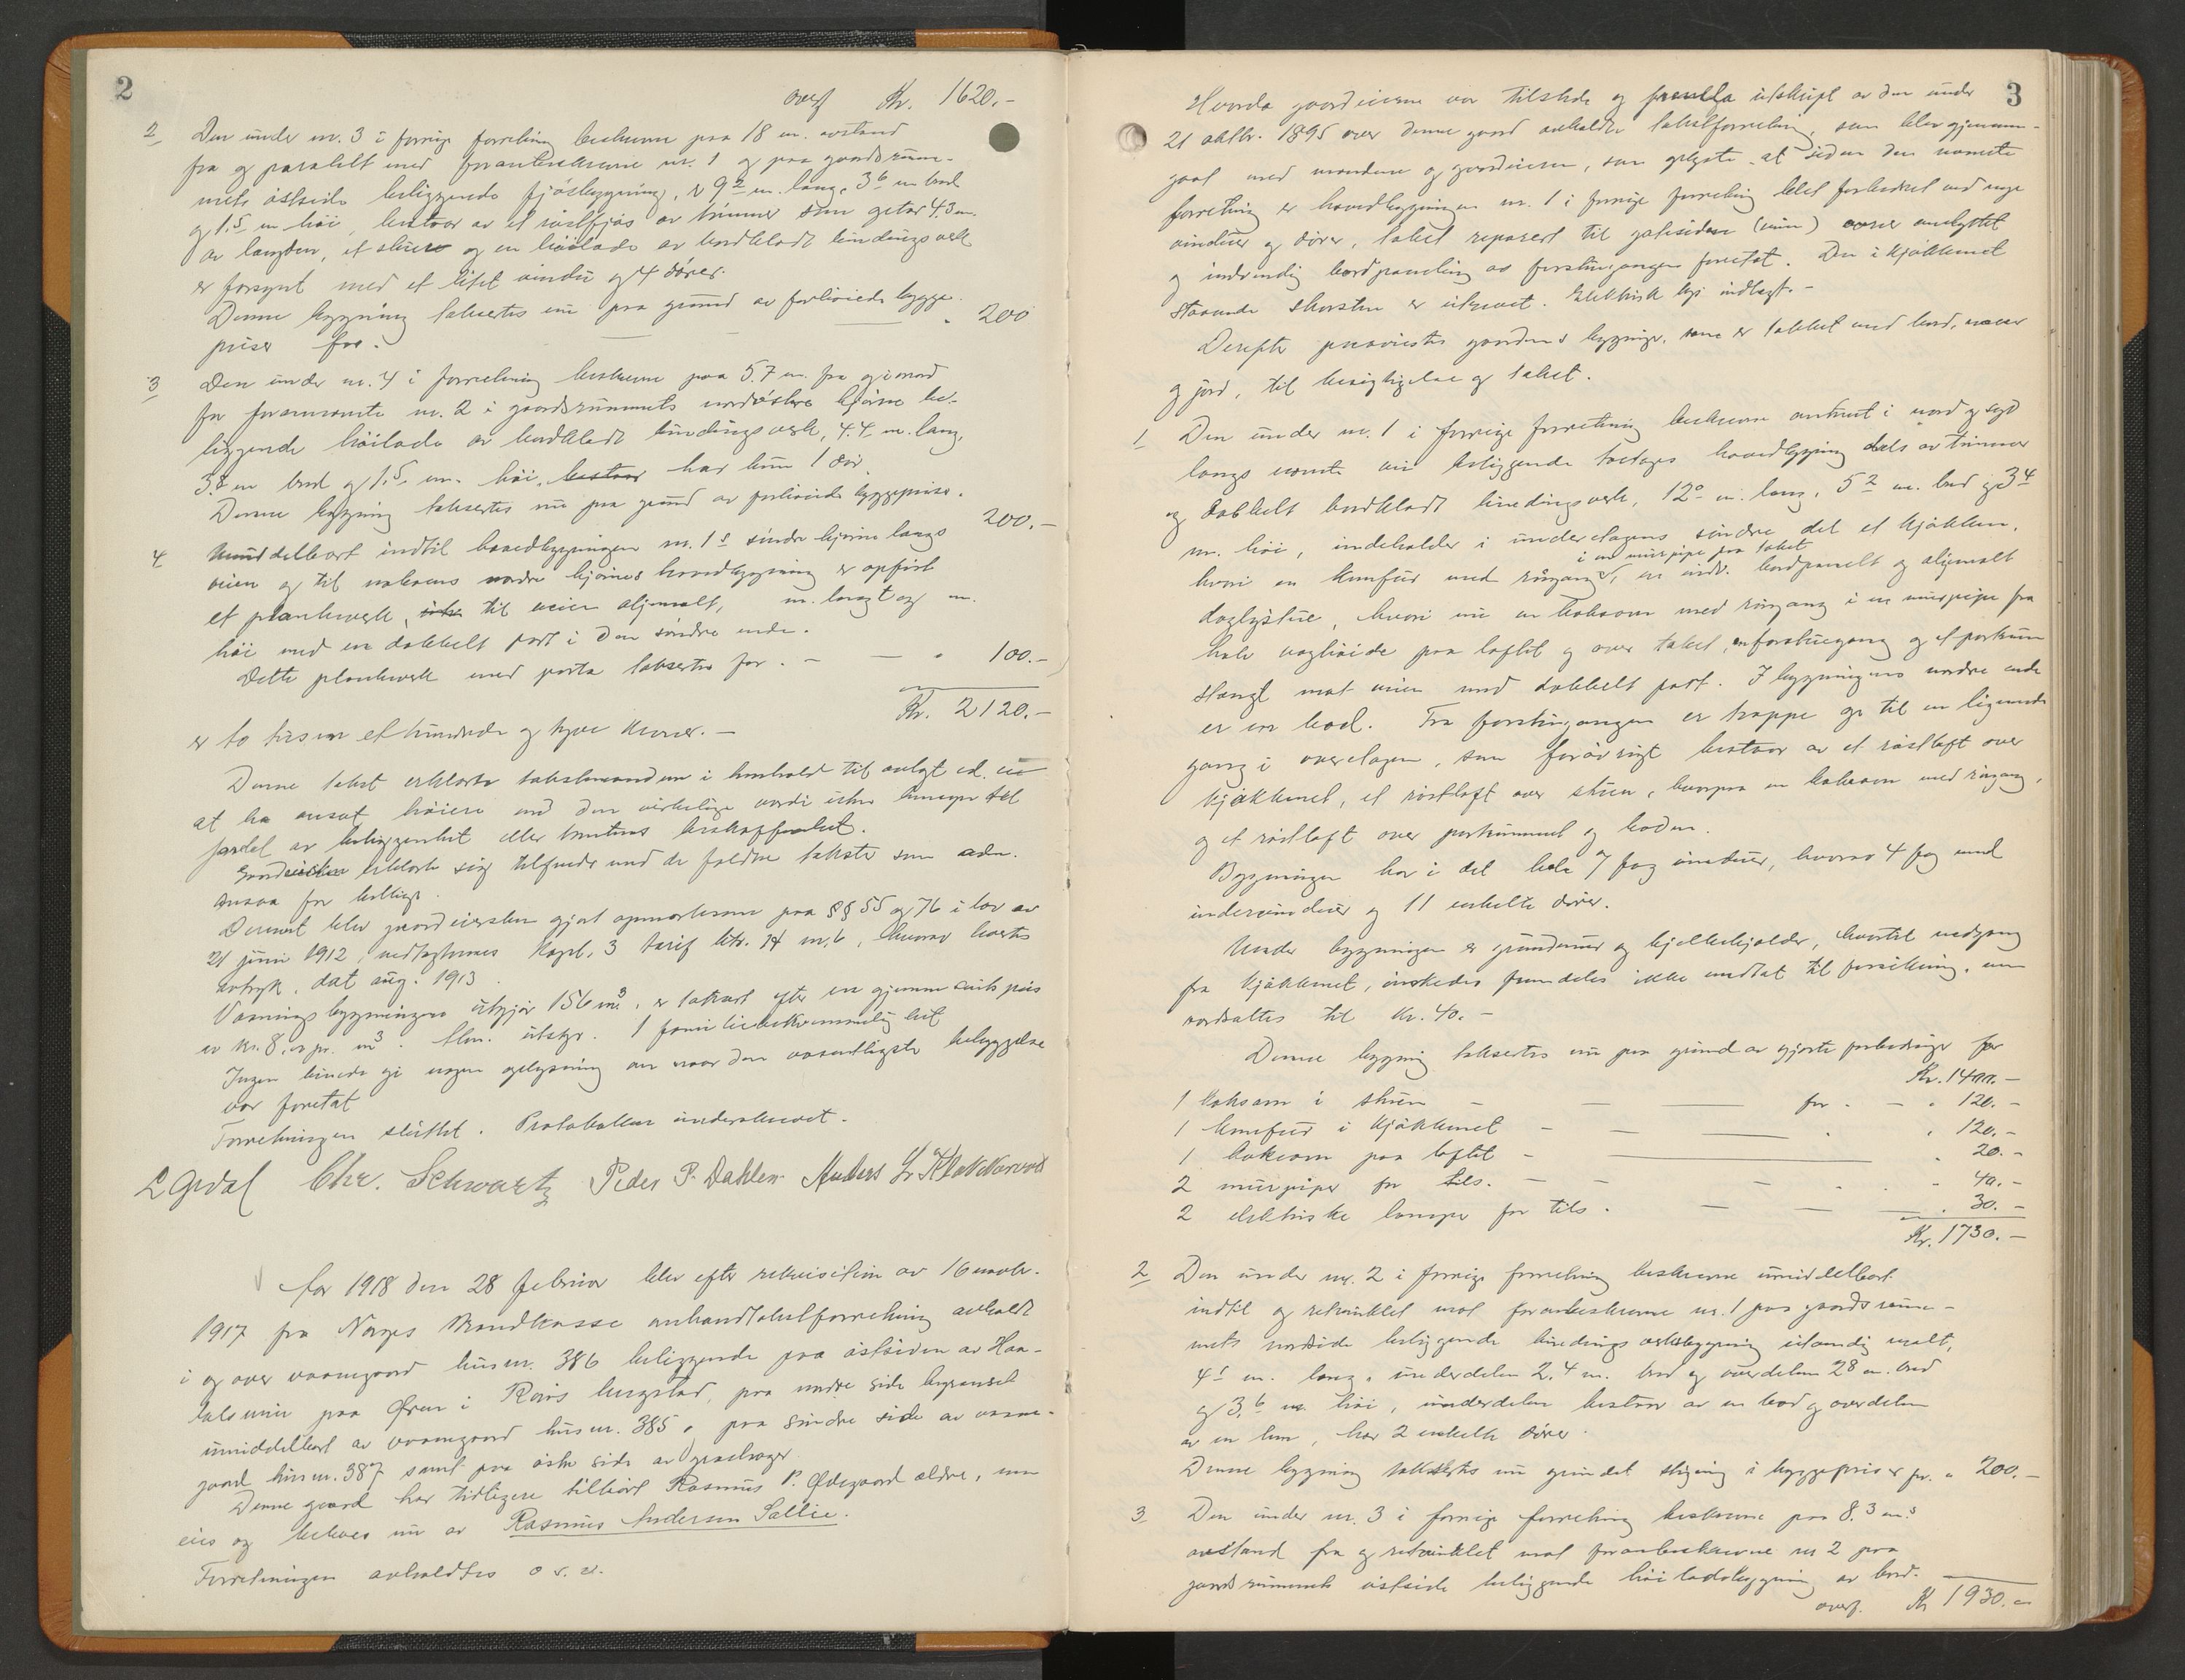 2
overf Kr. 1620.-
2 Den under nr. 3 i forrige forretning beskrevne paa 18 m. avstand
fra og paralelt med foranbeskrevne nr. 1 og paa gaardsrum-
mets østside beliggende fjøsbygning, er 9.2 m. lang, 3.6 m bred
og 1.5 m høi, bestaar av et røstfjøs av tømmer som optar 4.3 m.
av længden, et skur og en høilade av bordklædt bindingsverk
er forsynt med et litet vindu og 4 dører.
Denne bygning takseres nu paa grund av forhøiede bygge-
priser for. — — " 200
3 Den under nr. 4 i forretning beskrevne paa 5.7 m. fra og imod
før forannævnte nr. 2 i gaardsrummets nordøstre hjørne be-
liggende høilade av bordklædt bindingsverk, 4.4 m. lang,
3.8 m bred og 1.5 m. høi, bestaar har kun 1 dør.
Denne bygning takseres nu paa grund av forhøiede byggepriser.
200.-
4 Umiddelbart indtil hovedbygningen nr. 1s søndre hjørne langs
veien og til naboens nordre hjørnes hovedbygning er opført
et plankeverk, til veien oljemalt, m. langt og m.
høi med en dobbelt port i den søndre ende.
Dette plankeverk med porten takseres for. - — " 100.-
Kr. 2120.-
er to tusen et hundrede og tyve kroner. —
Denne takst erklærte takstmændene i henhold til avlagt ed. ei
at ha ansat høiere end den virkelige værdi uten hensyn til
fordel av beliggenhet eller tomtens beskaffenhet.
Gaardeieren erklærte sig tilfreds med de faldne takster som
ansaa for billige.
Dernæst blev gaardeiersken gjort opmerksom paa §§ 55 og 76 i lov av
21 juni 1912, vedtægternes Kapl. 3 tarif litr. 14 nr. 6, hvorav hvertes
avtryk, dat aug. 1913
Vaaningsbygningen utgjør 156 m3, er takseret efter en gjennemsnits pris
av kr. 8. pr. m3. Alm. utstyr. 1 familiebekvemmelighet
Ingen kunde gi nogen oplysning om naar den væsentligste bebyggelse
var foretat
Forretningen sluttet. Protokollen underskrevet.
L Grdal Chr. Schwartz Peder P. Dahlen Anders L. Klokkervold
Aar 1918 den 28 februar blev efter rekvisition av 16 novbr.
1917 fra Norges Brandkasse omhandltakstforretning avholdt
i og over vaaningsgaard husnr. 386 beliggende paa østsiden av Haa-
paa Øren i Røros bergstad, paa nordre side begrænset
umiddelbart av vaaningsgaard husnr. 385, paa søndre side av vaane-
gaard husnr. 387 samt paa østre side av græshager
Denne gaard har tidligere tilhørt Rasmus P. Ødegaard ældre, men
eies og beboes nu av Rasmus Andersen Sallie.
Forretningen avholdtes o. s. v.
3
Hvorda gaardeieren var tilstede og fremla utskrift av den under
21 oktbr. 1895 over denne gaard avholdte takstforretning, som blev gjennem-
gaat med mændene og gaardeieren, som oplyste at siden den nævnte
forretning er hovedbygningen nr. 1 i forrige forretning blet forbedret med nye
vinduer og dører, taket reparert til gatesiden (veien)
og indvendig bordpaneling av forstugangen foretat. Den i kjøkkenet
staaende skorsten er utrevet. Elektrisk lys indlagt. -
Derefter paavistes gaardens bygninger, som er tækket med bord, næver
og jord, til besigtigelse og takst.
1 Den under nr. 1 i forrige forretning beskrevne omtrent i nord og syd
langs nævnte vei beliggende toetages hovedbygning dels av tømmer
og dobbelt bordklædt bindingsverk, 12.0 m. lang, 5.2 m. bred og 3.4
m. høi, indeholder i underetagens søndre del et kjøkken,
i en murpipe paa taket
hvori en komfur med rørgang, er indv. bordpanelt og oljemalt
daglystue, hvori nu en kokovn med rørgang i en murpipe fra
halv væghøide paa loftet og over taket, en forstuegang og et portrum
stængt mot veien med dobbelt port. I bygningens nordre ende
er en bod. Fra forstugangen er trappe op til en lignende
gang i overetagen, som forøvrigt bestaar av et røstloft over
kjøkkenet, et røstloft over stuen, hvorpaa en kakovn med rørgang,
og et røstloft over portrummet og boden.
Bygningen har i det hele 7 fag vinduer, hvorav 4 fag med
indervinduer og 11 enkelte dører.
Under bygningen er grundmur og kjelderkjælder, hvortil nedgang
fra kjøkkenet, ønskedes fremdeles ikke medtat til forsikring, men
værdsattes til Kr. 40. -
Denne bygning takseres nu paa grund av gjorte forbedringer for
Kr. 1400.-
1 kokovn i stuen — — for - - " 120.-
1 komfur i kjøkkenet — — — " " 120.-
1 kakovn paa loftet — — " 20.-
2 murpiper for tils. — — — " " 40.-
2 elektriske lamper for tils. — — — " 30.-
Kr. 1730.-
2 Den under nr. 2 i forrige forretning beskrevne umiddelbart
indtil og retvinklet mot foranbeskrevne nr. 1 paa gaardsrum-
mets nordside beliggende bindingsverksbygning utvendig malt,
4.5 m. lang, underdelen 2.4 m. bred og overdelen 2.8 m. bred
og 3.6 m. høi, underdelen bestaar av en bod og overdelen
av en lem, har 2 enkelte dører.
Denne bygning takseres nu grundet stigning i byggepriser for " 200.-
3 Den under nr. 3 i forrige forretning beskrevne paa 8.3 m.s
avstand fra og retvinklet mot foranbeskrevne nr 2 paa
gaardsrummets østside beliggende høiladebygning av bord-
overf. Kr 1930.-